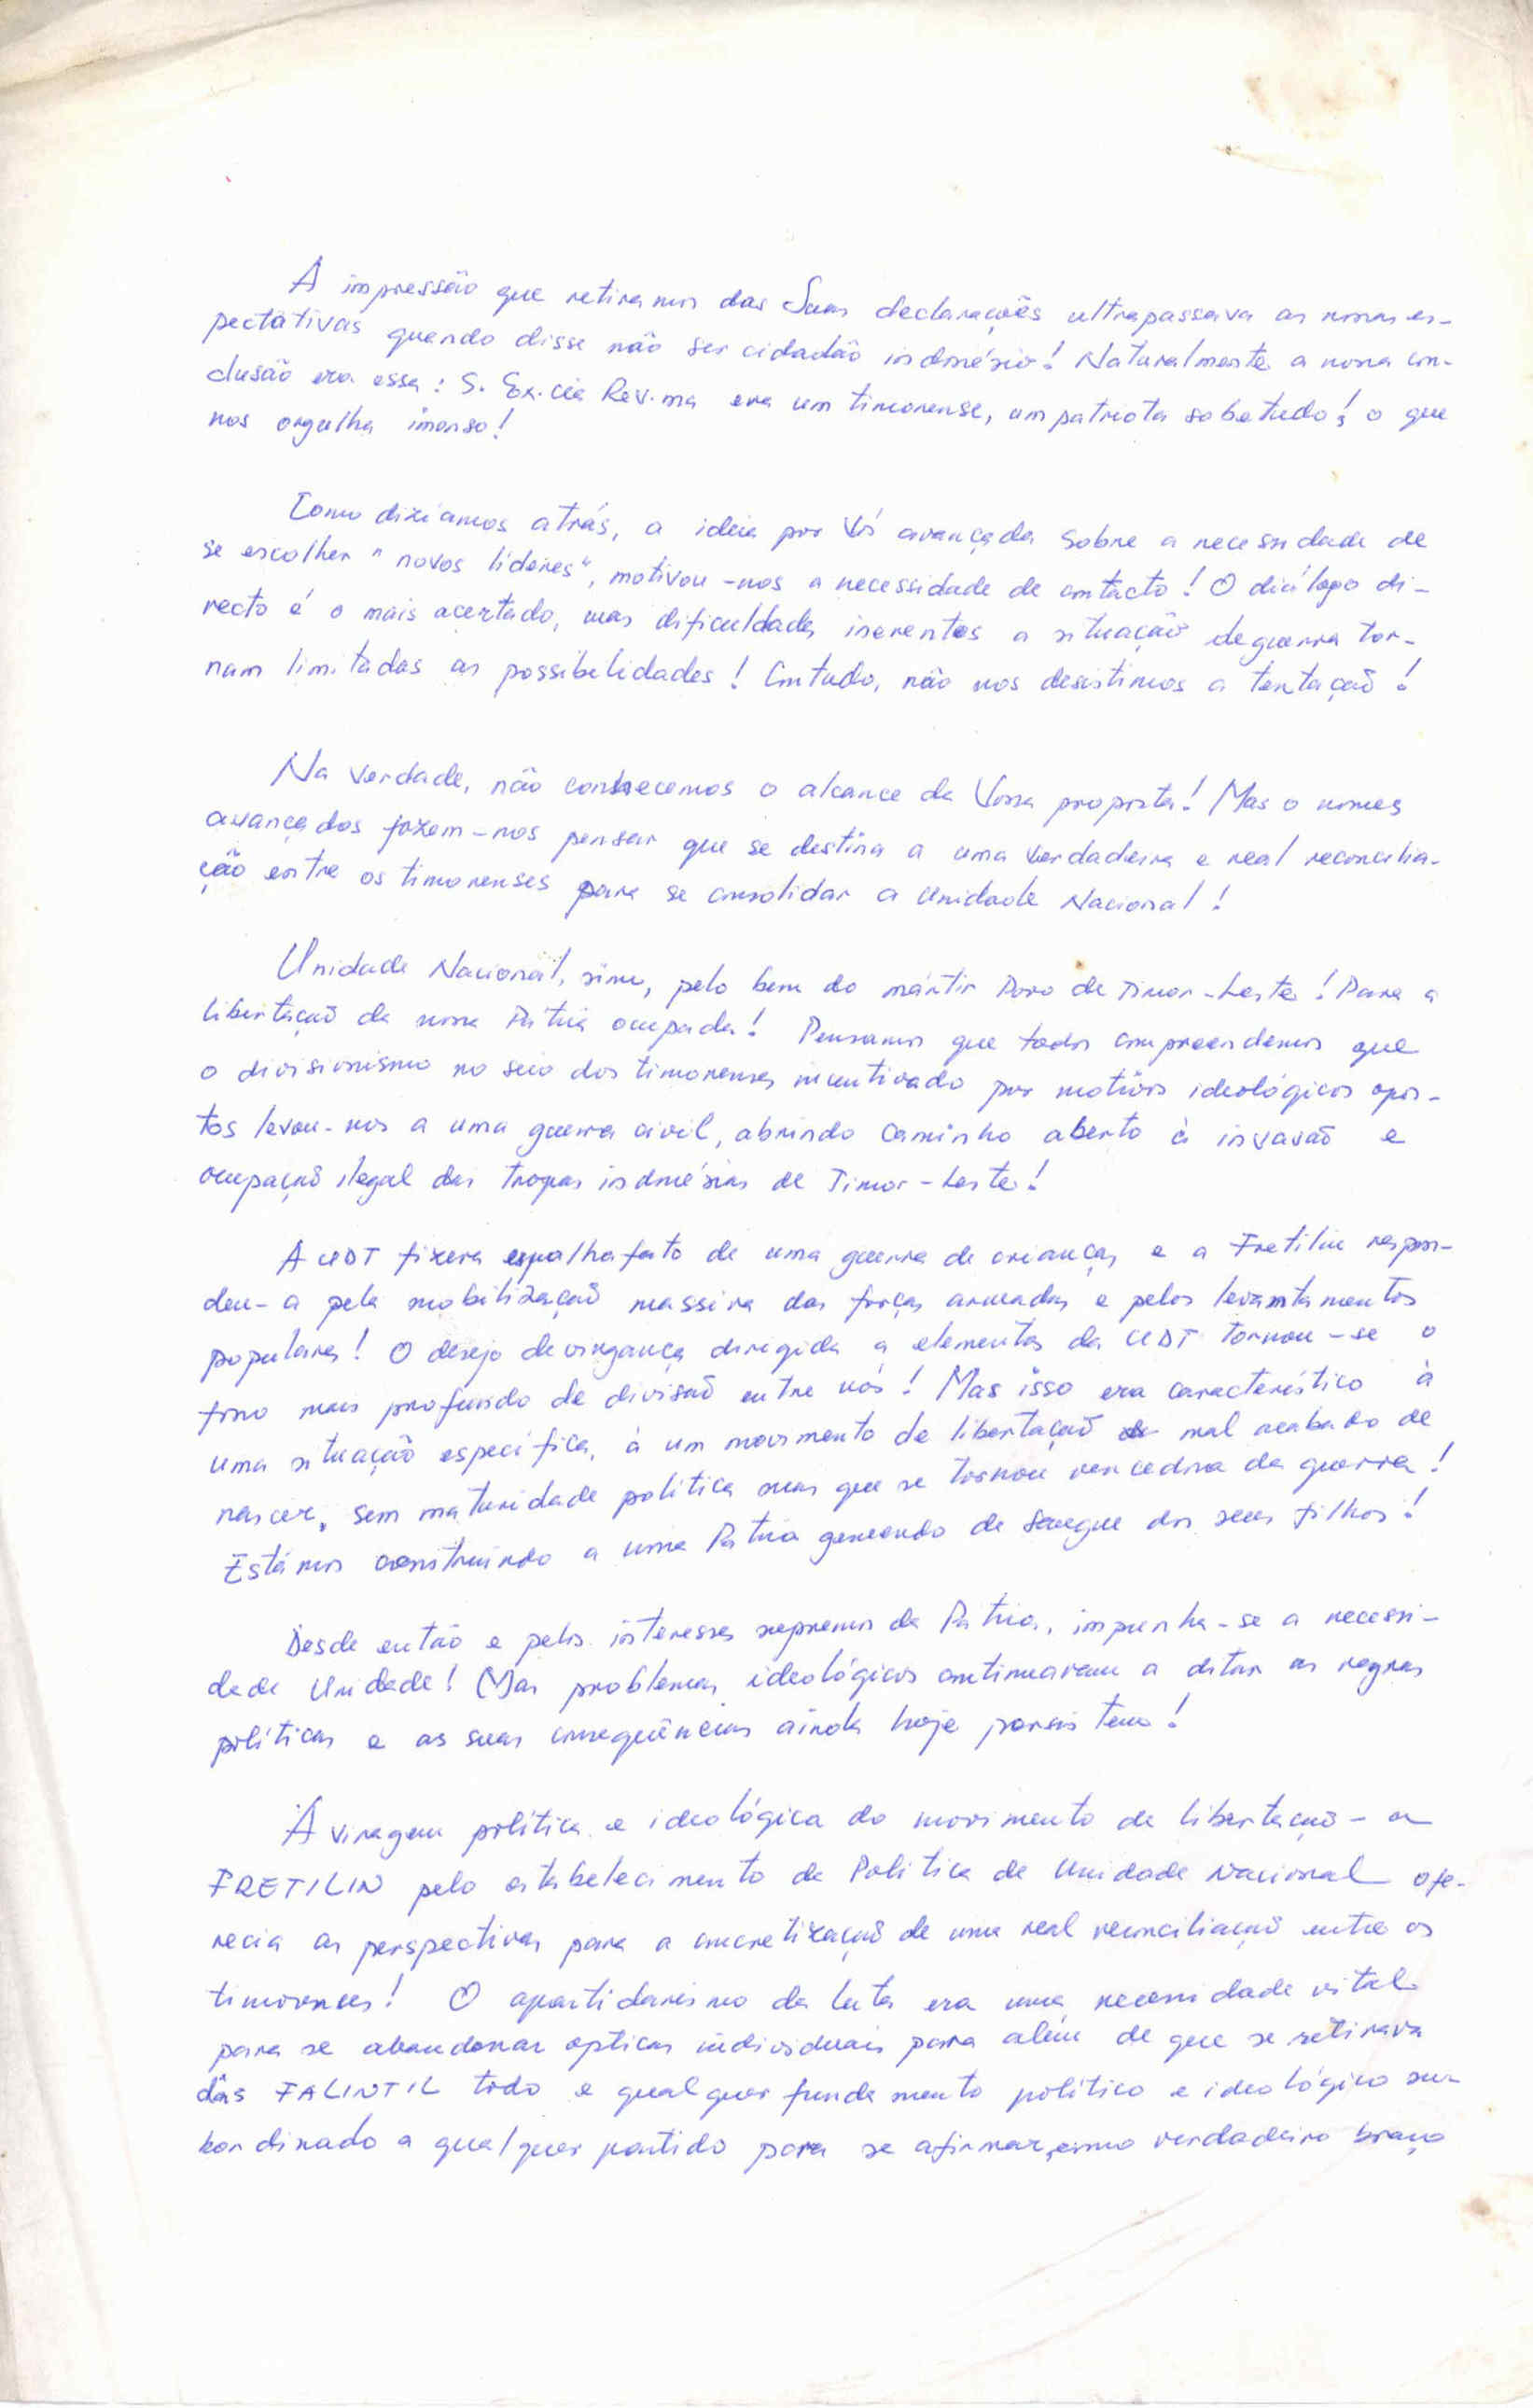 A impressão que retiramos das Suas declarações ultrapassava as nossas es-
pectativas quando disse não ser cidadão indonésio! Naturalmente a nossa con-
clusão era essa: S. Ex.cia Rev.ma era um timorense, um patriota sobetudo! o que
nos orgulha imenso!
Como dizíamos atrás, a ideia por Vós avançada sobre a necessidade de
se escolher "novos líderes", motivou-nos a necessidade de contacto! O diálogo di-
recto é o mais acertado, mas dificuldades inerentes a situação de guerra tor-
nam limitadas as possibelidades! Contudo, não nos desistimos a tentação!
Na verdade, não conhecemos o alcance da Vossa proposta! Mas o nomes
avançados fazem-nos pensar que se destina a uma verdadeira e real reconcilia-
ção entre os timorenses para se consolidar a Unidade Nacional!
Unidade Nacional, sim, pelo bem do mártir Povo de Timor-Leste! Para a
libertação da nossa Pátria ocupada! Pensamos que todos compreendemos que
o divisionismo no seio dos timorenses incentivado por motivos ideológicos opos-
tos levou-nos a uma guerra civil, abrindo caminho aberto à invasão e
ocupação ilegal das tropas indonésias de Timor-Leste!
A UDT fizera espalhafato de uma guerra de crianças e a Fretilin respon-
deu-a pela mobilização massiva das forças armadas e pelos levantamentos
populares! O desejo de vingança dirigida a elementos da UDT tornou-se o
fosso mais profundo de divisão entre nós! Mas isso era característico à
uma situação específica, à um movimento de libertação mal acabado de
nascer, sem maturidade política mas que se tornou vencedora da guerra!
Estámos construindo a uma Pátria gemendo de sangue dos seus filhos!
Desde então e pelos interesses supremos da Pátria, impunha-se a necessi-
dade Unidade! Mas problemas ideológicos continuaram a ditar as regras
políticas e as suas consequências ainda hoje persistem!
A viragem política e ideológica do movimento de libertação - a
FRETILIN pelo estabelecimento da Política de Unidade Nacional ofe-
recia as perspectivas para a concretização de uma real reconciliação entre os
timorenses! O apartidarismo da luta era uma necessidade vital
para se abandonar opticas individuais para além de que se retirava
dàs FALINTIL todo e qualquer fundamento político e ideológico su-
bordinado a qualquer partido para se afirmar, como verdadeiro braço